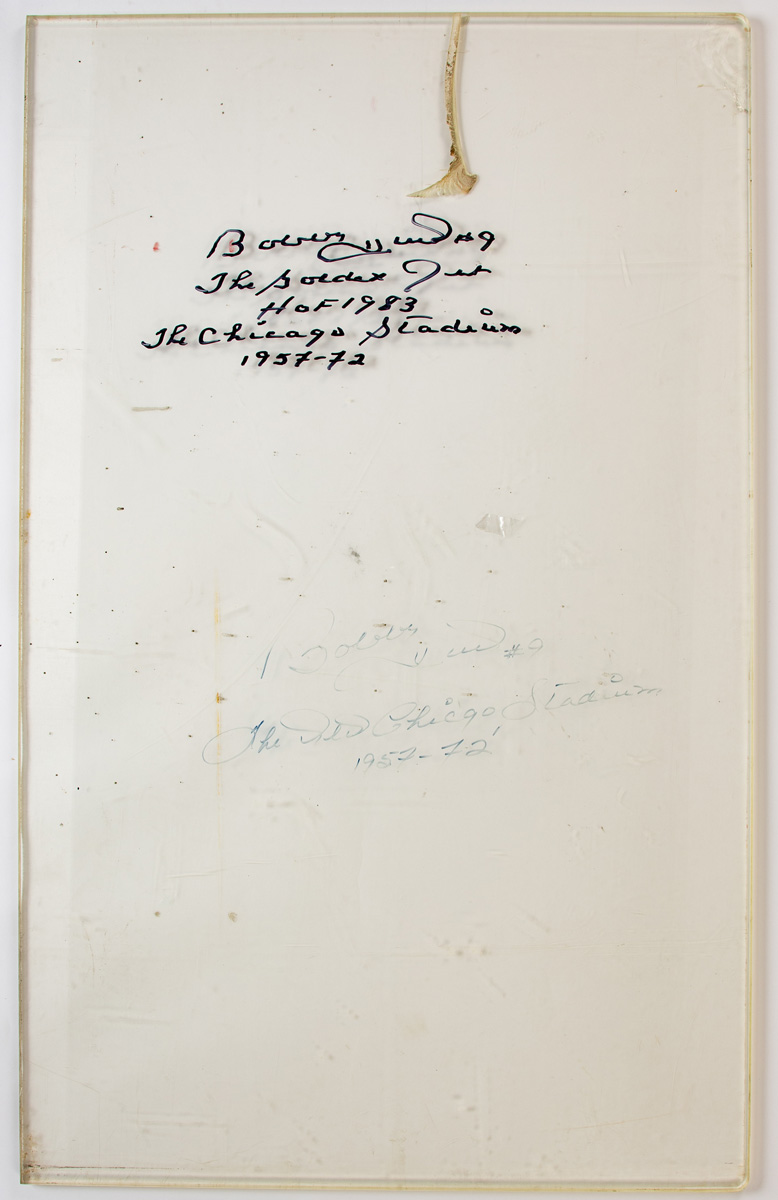 Bobby Hull #9
The Golden Jet
HOF 1983
The Chicago Stadium
1957-72
Bobby Hull #9
The Old Chicgo Stadium
1957-72